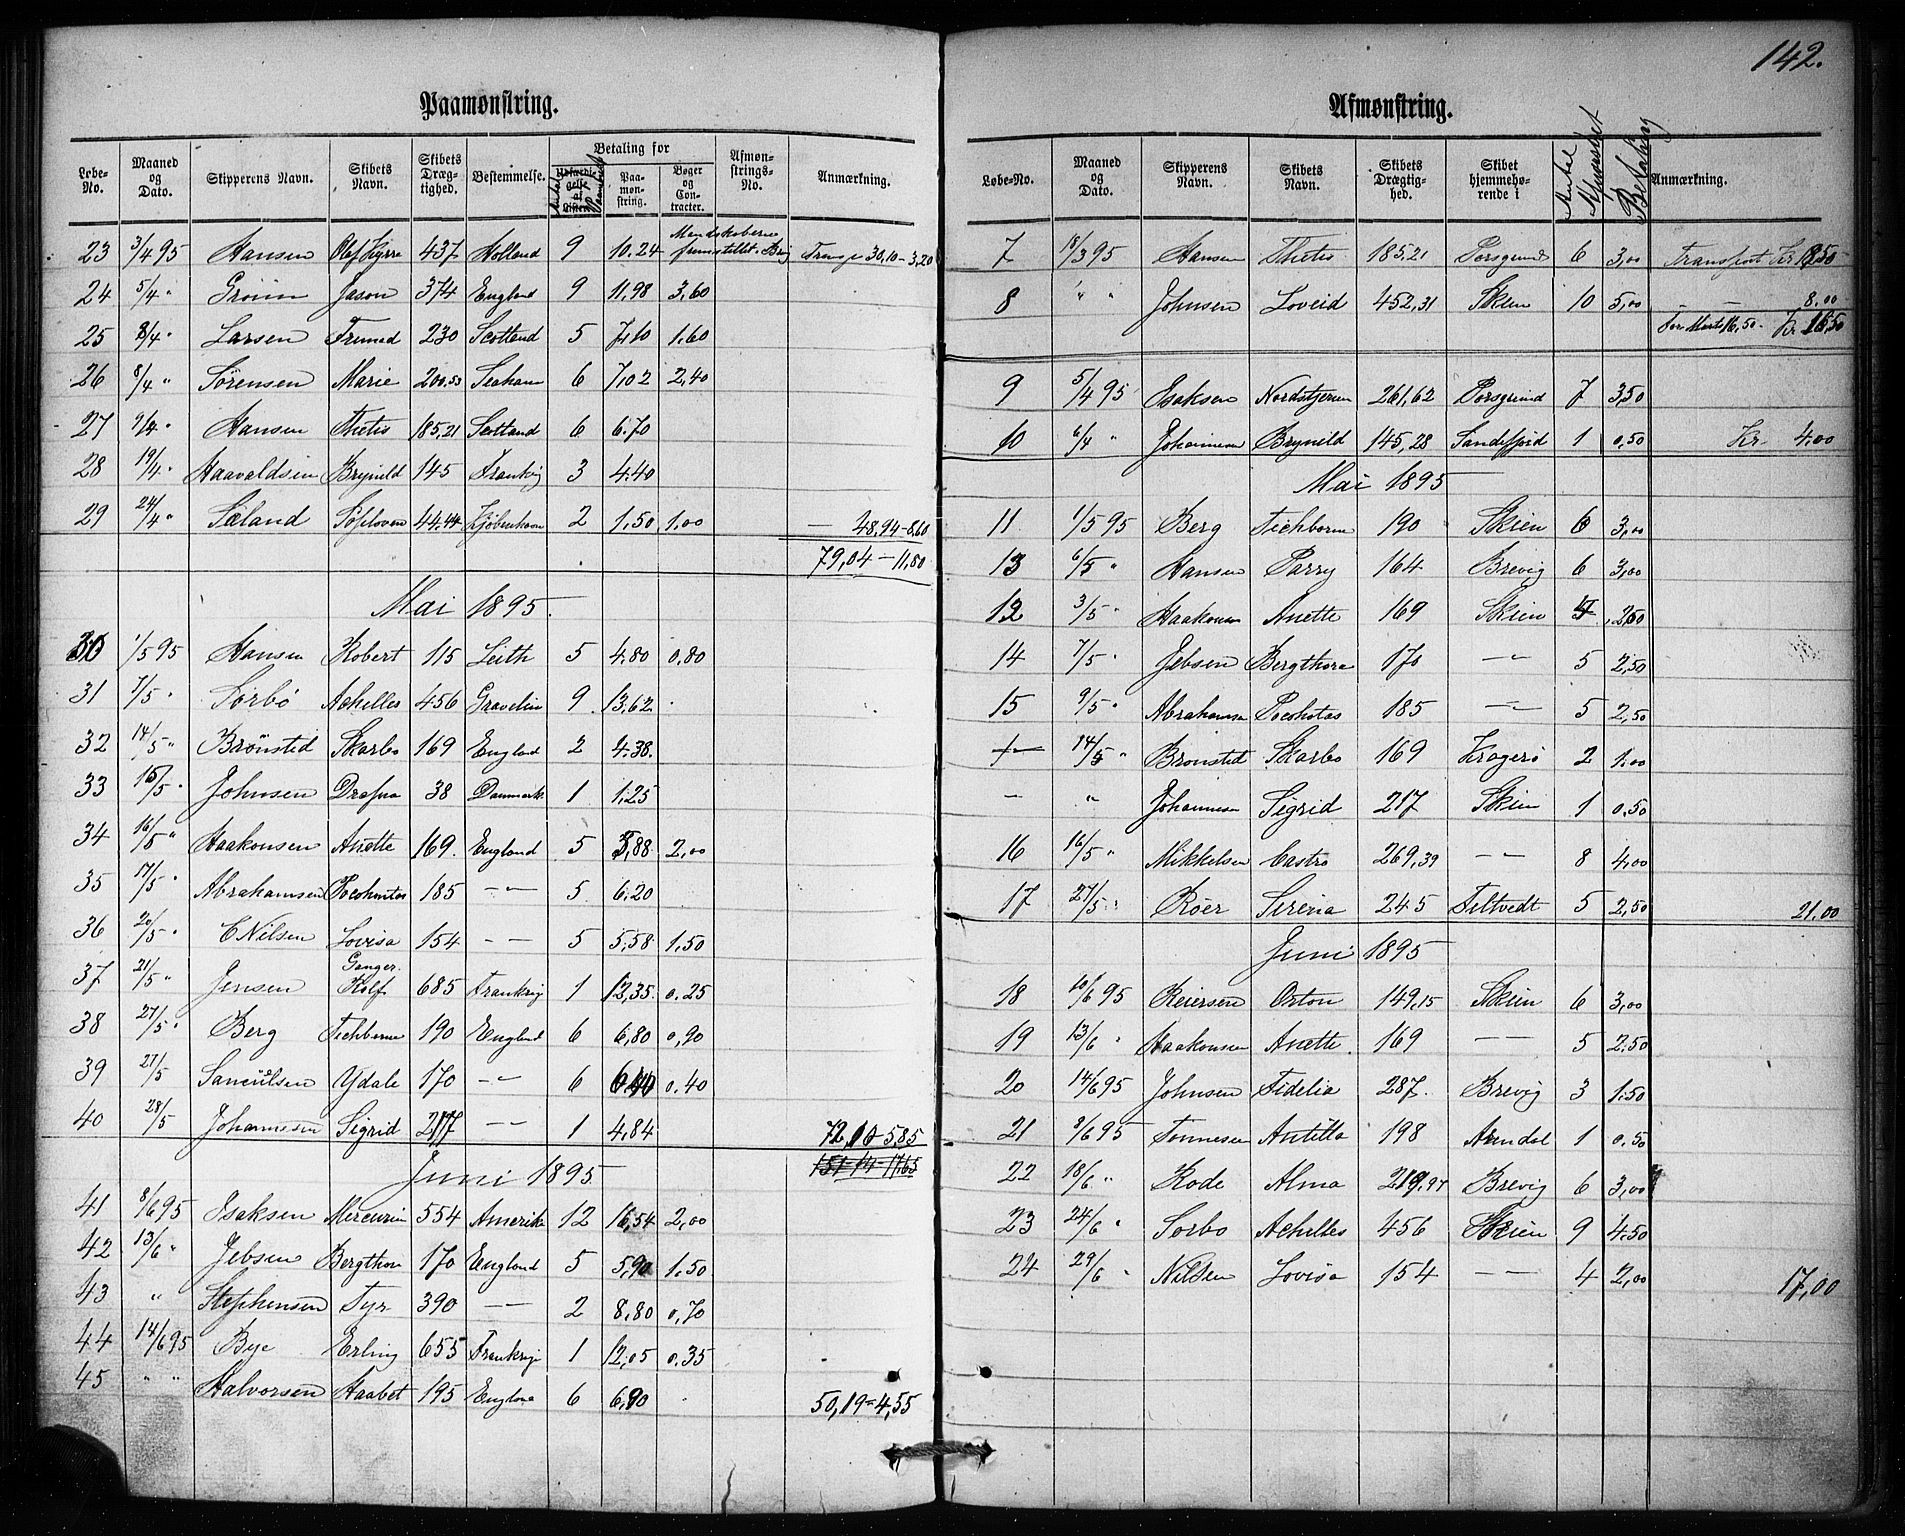 142.
Paamønstring.
Løbe-No. | Maaned og Dato. | Skipperens Navn. | Skibets Navn. | Skibets Dræg-tighed. | Bestemmelse. | Betaling for | Paa-mon-string. | Bøger og Con-tracter. | Afmøn-strings-No. | Anmærkning.
23 3/4 95 Hansen Olaf Kyrre 437 Holland 9 10.24 30,10 - 3,20
24 5/4 " Jason 374 England 9 11,98 3,60
25 8/4 " Larsen 230 Scotland 5 7,10 1.60
26 8/4 " Sørensen Marie 200.53 6 7,02 2,40
27 9/4 " Hansen Thetis 185,21 Scotland 6 6.70
28 19/4 " Haavaldsen Brynild 145 Frankrig 3 4.40
29 24/4 " Sæland 44.44 Kjøbenhavn 2 1,50 1,00 — 48,94 - 8,60
79,04 - 11,80
Mai 1895.
30 1/5 95 Hansen Robert 115 Leith 5 4.80 0,80
31 7/5 " Sørbö Achilles 456 Gravelin 9 13,62
32 14/5 " Brönsted Skarbo 169 England 2 4.38
33 15/5 " Johnsen Drafna 38 Danmark 1 1.25
34 16/5 " Haakonsen Anette 169 England 5 5,88 2,00
35 17/5 " Abrahamsen Pocohontas 185 —"— 5 6.20
36 20/5 " C Nilsen Lovisa 154 — — 5 5,58 1.50
37 21/5 " Jensen Ganger Rolf 685 Frankrig 1 12,35 0.25
38 27/5 " Berg Tichborne 190 England 6 6,80 0,90
39 27/5 Samuelsen Ydale 170 —"— 6 6,40 0.40
40 28/5 Johannesen Sigrid 217 — — 1 4,84 72,10 5,85
151 14 - 17,65
Juni 1895
41 8/6 95 Isaksen Mercurius 554 Amerika 12 16,54 2,00
42 13/6 " Jebsen Bergthora 170 England 5 5,90 1.50
43 " Stephensen Tyr 390 — — 2 8,80 0,70
44 14/6 95 Bye Erling 655 Frankrige 1 12,05 0.35
45 " " Halvorsen Haabet 195 England 6 6,90 50,19 - 4,55
Afmønstring.
Løbe-No. | Maaned og Dato. | Skipperens Navn. | Skibets Navn. | Skibets Drægtig-hed. | Skibet hjemmehø-rende i | Antal Mønstret | Betaling | Anmærkning.
7 18/3 95 Hansen Thetis 185,21 Porsgrund 6 3,00 Transport Kr 8,50
8 " " Johnsen Loveid 452,31 Skien 10 5,00 — 8.00
For Marts 16,50 - Kr 16,50
9 5/4 95 Isaksen Nordstjernen 261,62 Porsgrund 7 3,50
10 6/4 " Johannesen Brynild 145,28 Sandefjord 1 0,50 Kr. 4,00
Mai 1895
11 1/5 95 Berg Tichborne 190 Skien 6 3,00
13 6/5 " Hansen Parry 164 Brevig 6 3,00
12 3/5 " Haakonsen Anette 169 Skien 2,50
14 7/5 " Jebsen Bergthora 170 —"— 5 2,50
15 9/5 " Abrahamsen Pocohotas 185 —"— 5 2,50
— 14/5 " Brønsted Skarbo 169 Kragerö 2 1.00
— " Johannesen Sigrid 217 Skien 1 0,50
16 16/5 " Mikkelsen Castro 269,39 — — 8 4,00
17 27/5 " Röer Sirena 245 Feltvedt 5 2,50 21,00
Juni 1895
18 10/6 95 Reiersen Orton 149,15 Skien 6 3,00
19 13/6 " Haakonsen Anette 169 — — 5 2.50
20 14/6 95 Johnsen Fidelia 287. Brevig 3 1.50
21 3/6 95 Tönnesen Antilla 198 Arndal 1 0.50
22 18/6 " Rode Alma 219,97 Brevig 6 3,00
23 24/6 " Sorbo Achilles 456 Skien 9 4.50
24 29/6 " Nilsen Lovisa 154 — — 4 2,00 17,00